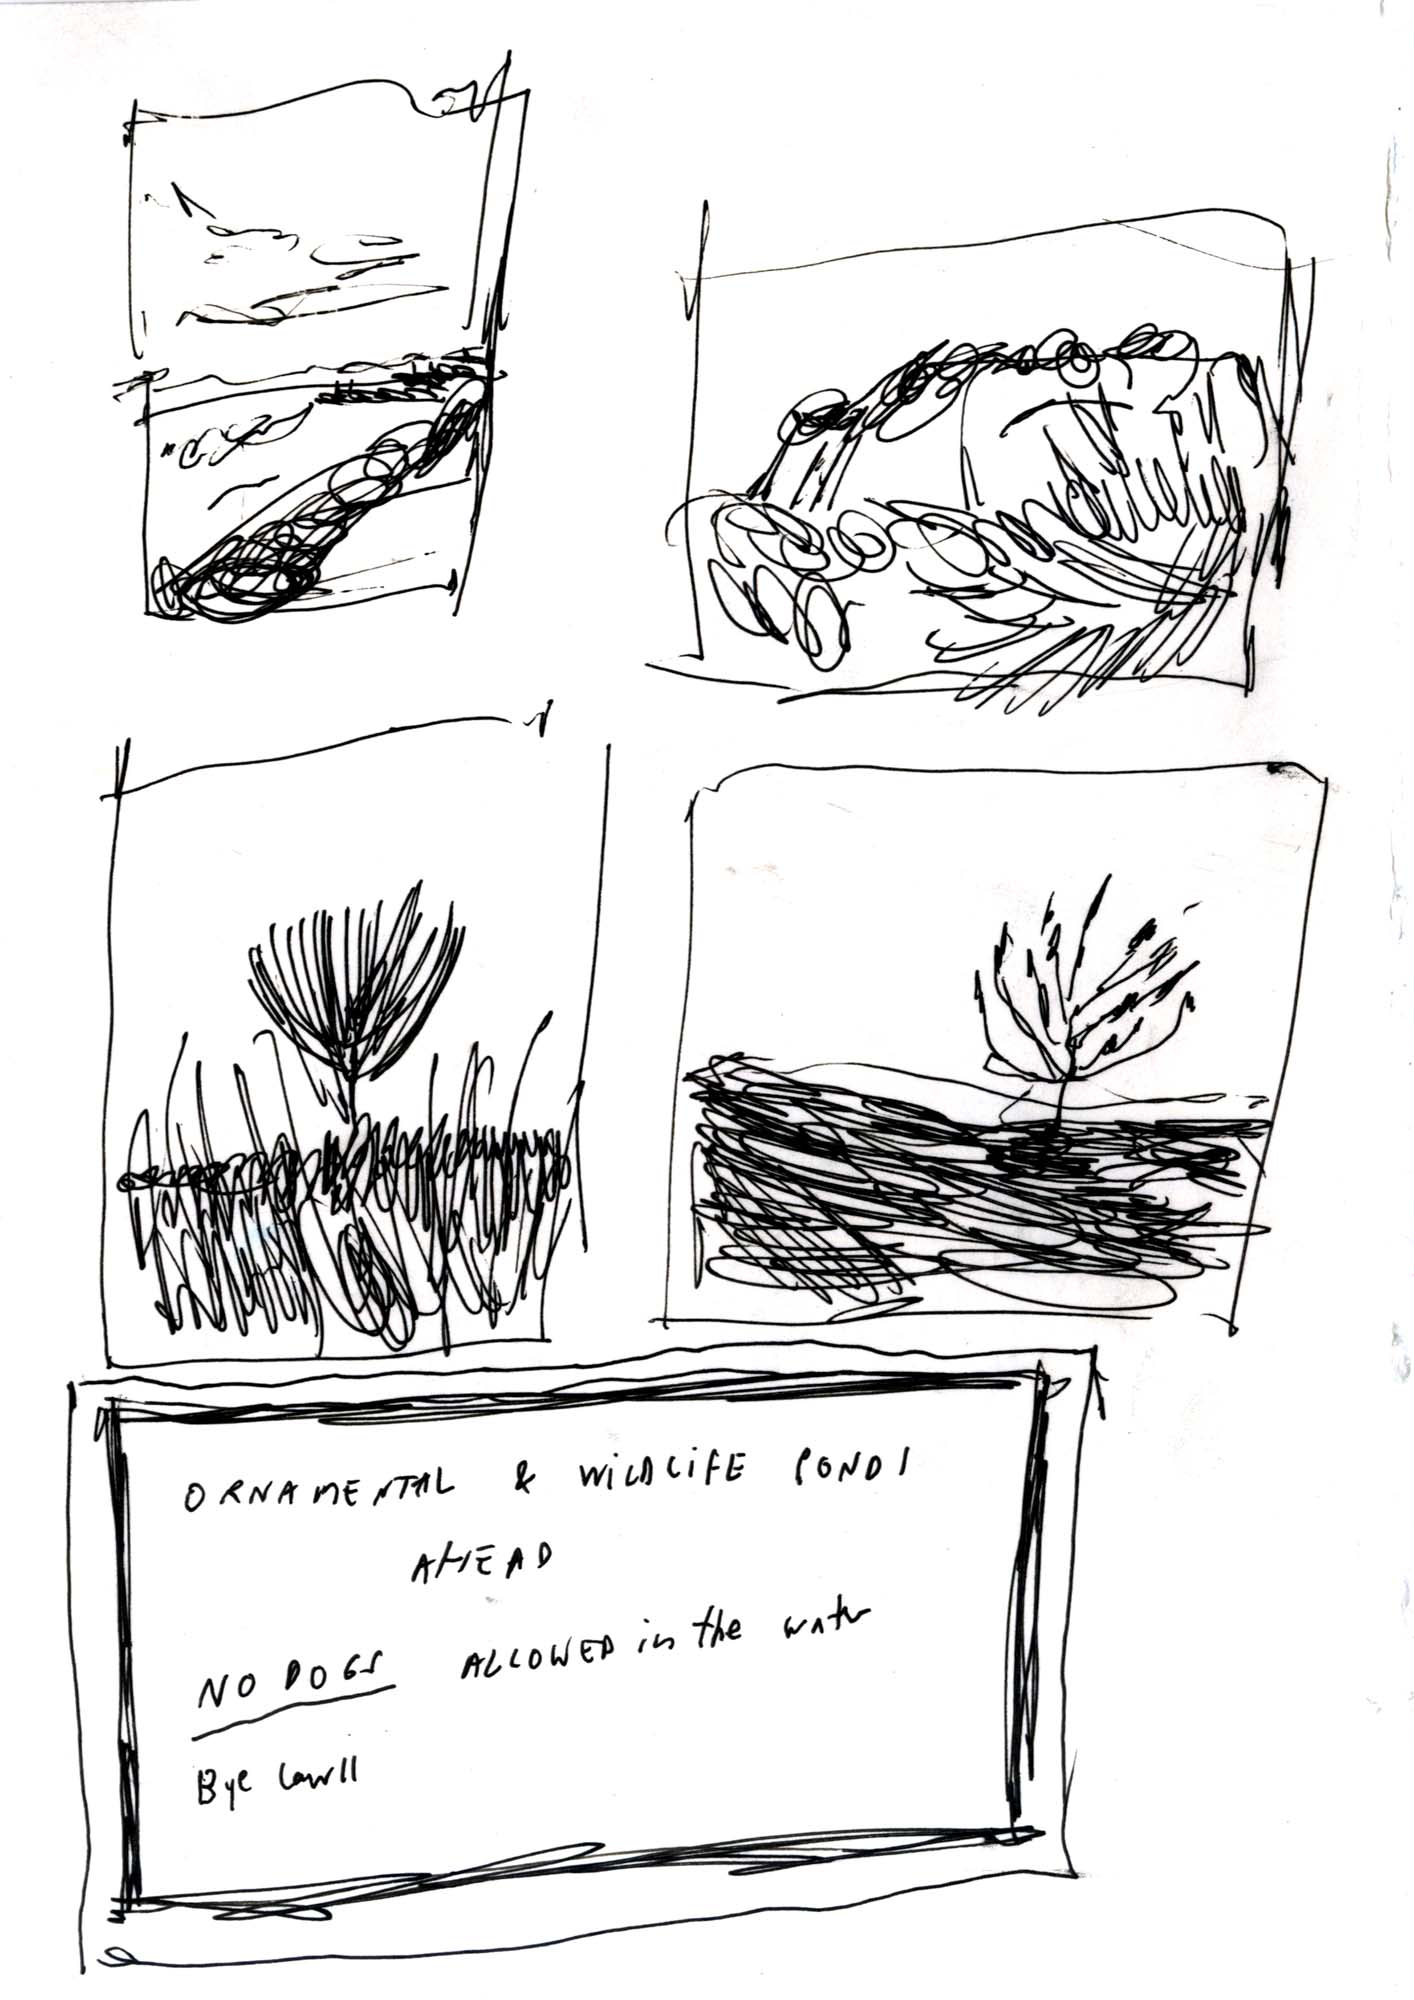 ORNAMENTAL & WILDLIFE PONDS
AHEAD
NO DOGS ALLOWED in the water
Bye